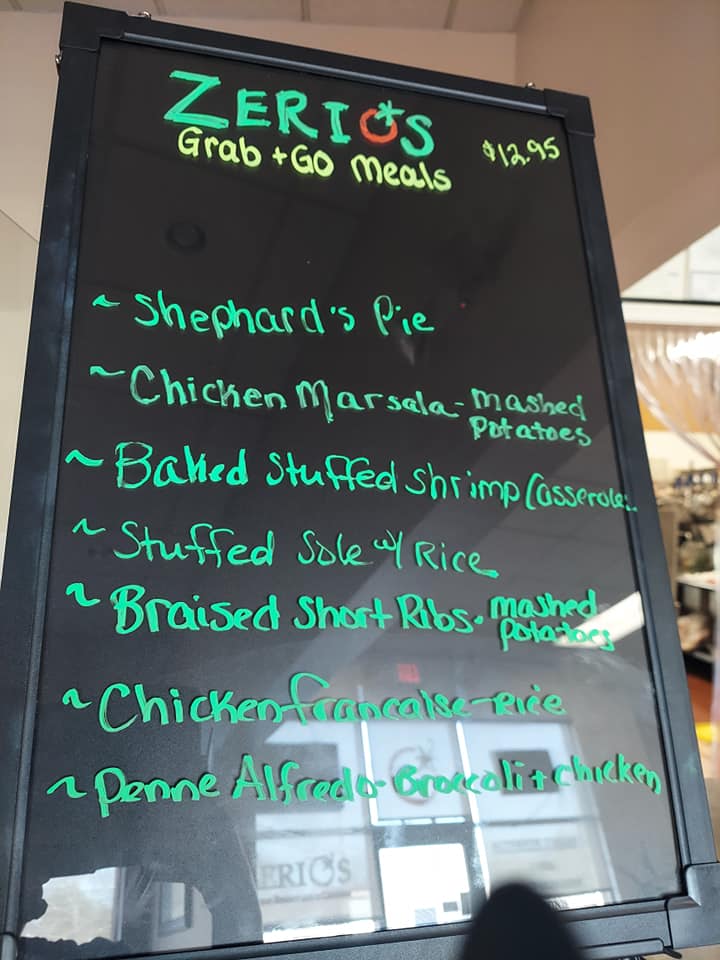 ZERIO'S
Grab + GO Meals
$12.95
~ Shephard's Pie
~ Chicken Marsala - mashed
potatoes
~ Baked Stuffed Shrimp Casserole
~ Stuffed Sole w/ Rice
~ Braised Short Ribs - mashed
potatoes
~ Chicken francaise - rice
~ Penne Alfredo - Broccoli + chicken
ERIO'S